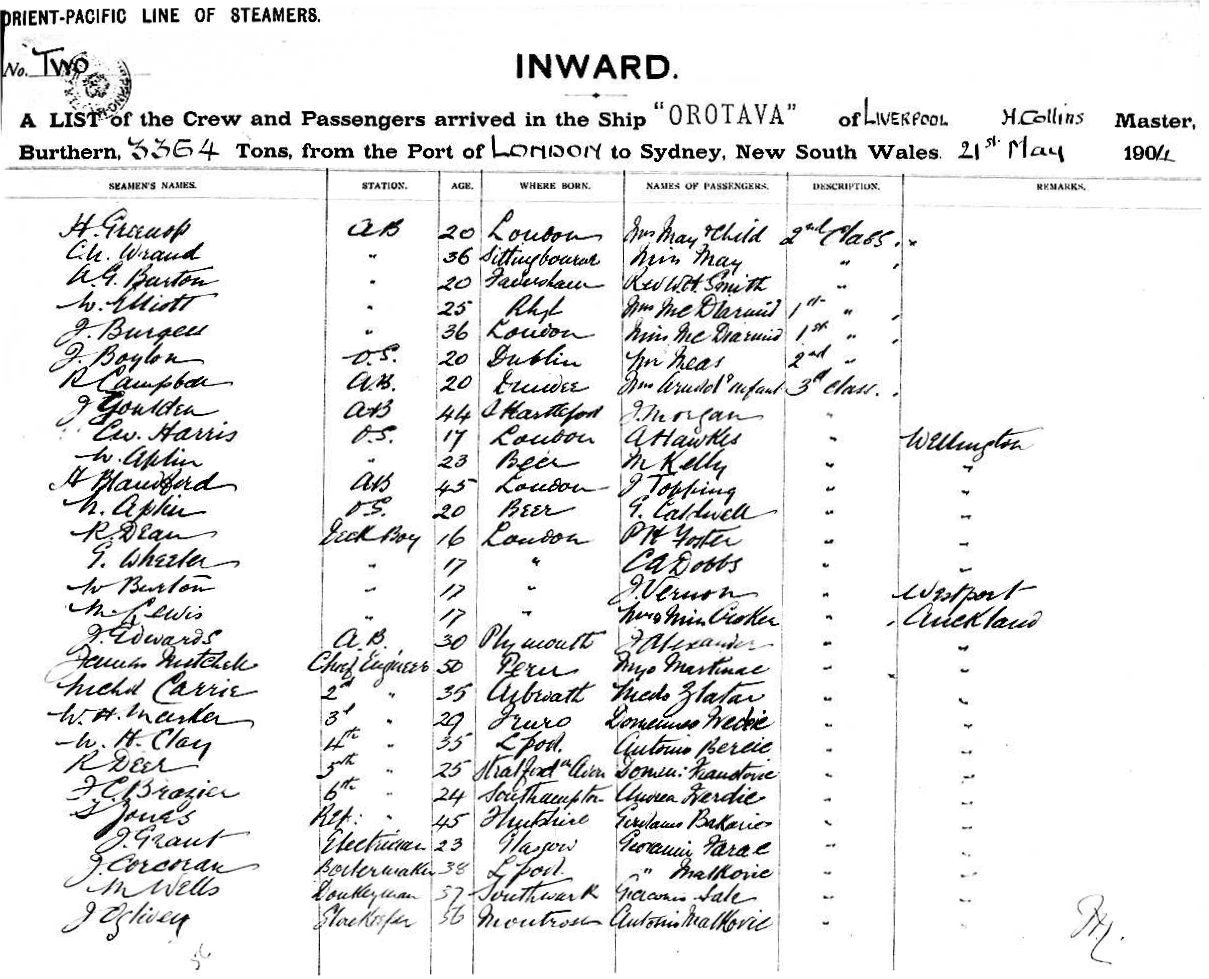 ORIENT-PACIFIC LINE OF STEAMERS.
No. Two
INWARD.
A LIST of the Crew and Passengers arrived in the Ship "OROTAVA" of LIVERPOOL H. Collins Master,
Burthern, 3364 Tons, from the Port of LONDON to Sydney, New South Wales. 21st May 1904
SEAMEN'S NAMES. STATION. AGE. WHERE BORN. NAMES OF PASSENGERS. DESCRIPTION. REMARKS.
H. Greenop AB 20 London Mrs May & Child 2nd Class. "
C.W. Wraud " 36 Sittingbourne Miss May "
W.G. Burton " 20 Faversham Rev W.H. Smith "
W. Elliott " 25 Rhyl Mrs McDiarmid 1st "
J. Burgess " 36 London Miss McDiarmid 1st "
J. Boylon O.S. 20 Dublin Mr Meas 2nd "
R Campbell A.B. 20 Dundee Mrs & infant 3rd Class.
J Goulden AB 44 J. Morgan "
C.W. Harris O.S. 17 London A Hawkes " Wellington
W. Aplin " 23 Beer M Kelly " "
H Blandford AB 45 London J Topping " "
W. Aplin O.S. 20 Beer G. Caldwell " "
R. Dean Deck Boy 16 London P H Foster " "
G. Wheeler " 17 " C A Dobbs " "
W Burton " 17 " J. Vernon " Westport
M. Lewis " 17 " Mrs & Miss Croker " Auckland
J. Edwards A.B. 30 Plymouth J Alexander " "
James Mitchell Chief Engineer 50 Peru Martinac " "
Carrie 2d " 35 Arbroath Zlatar " "
W. H. 3d " 29 Truro " "
W. H. Clay 4th " 35 L'pool. Antonio Bercic " "
R Deer 5th " 25 Stratford on Avon " "
F C Brazier 6th " 24 Southampton Andrea " "
Jones Ref: " 45 Flintshire " "
J. Grant Electrician 23 Glasgow Giovanni " "
J. Corcoran Boilermaker 38 L'pool. " Malkovic " "
M Wells Donkeyman 37 Southwark Giacomo " "
J Ogilvey Storekeeper 56 Montrose Antonio Malkovic " "